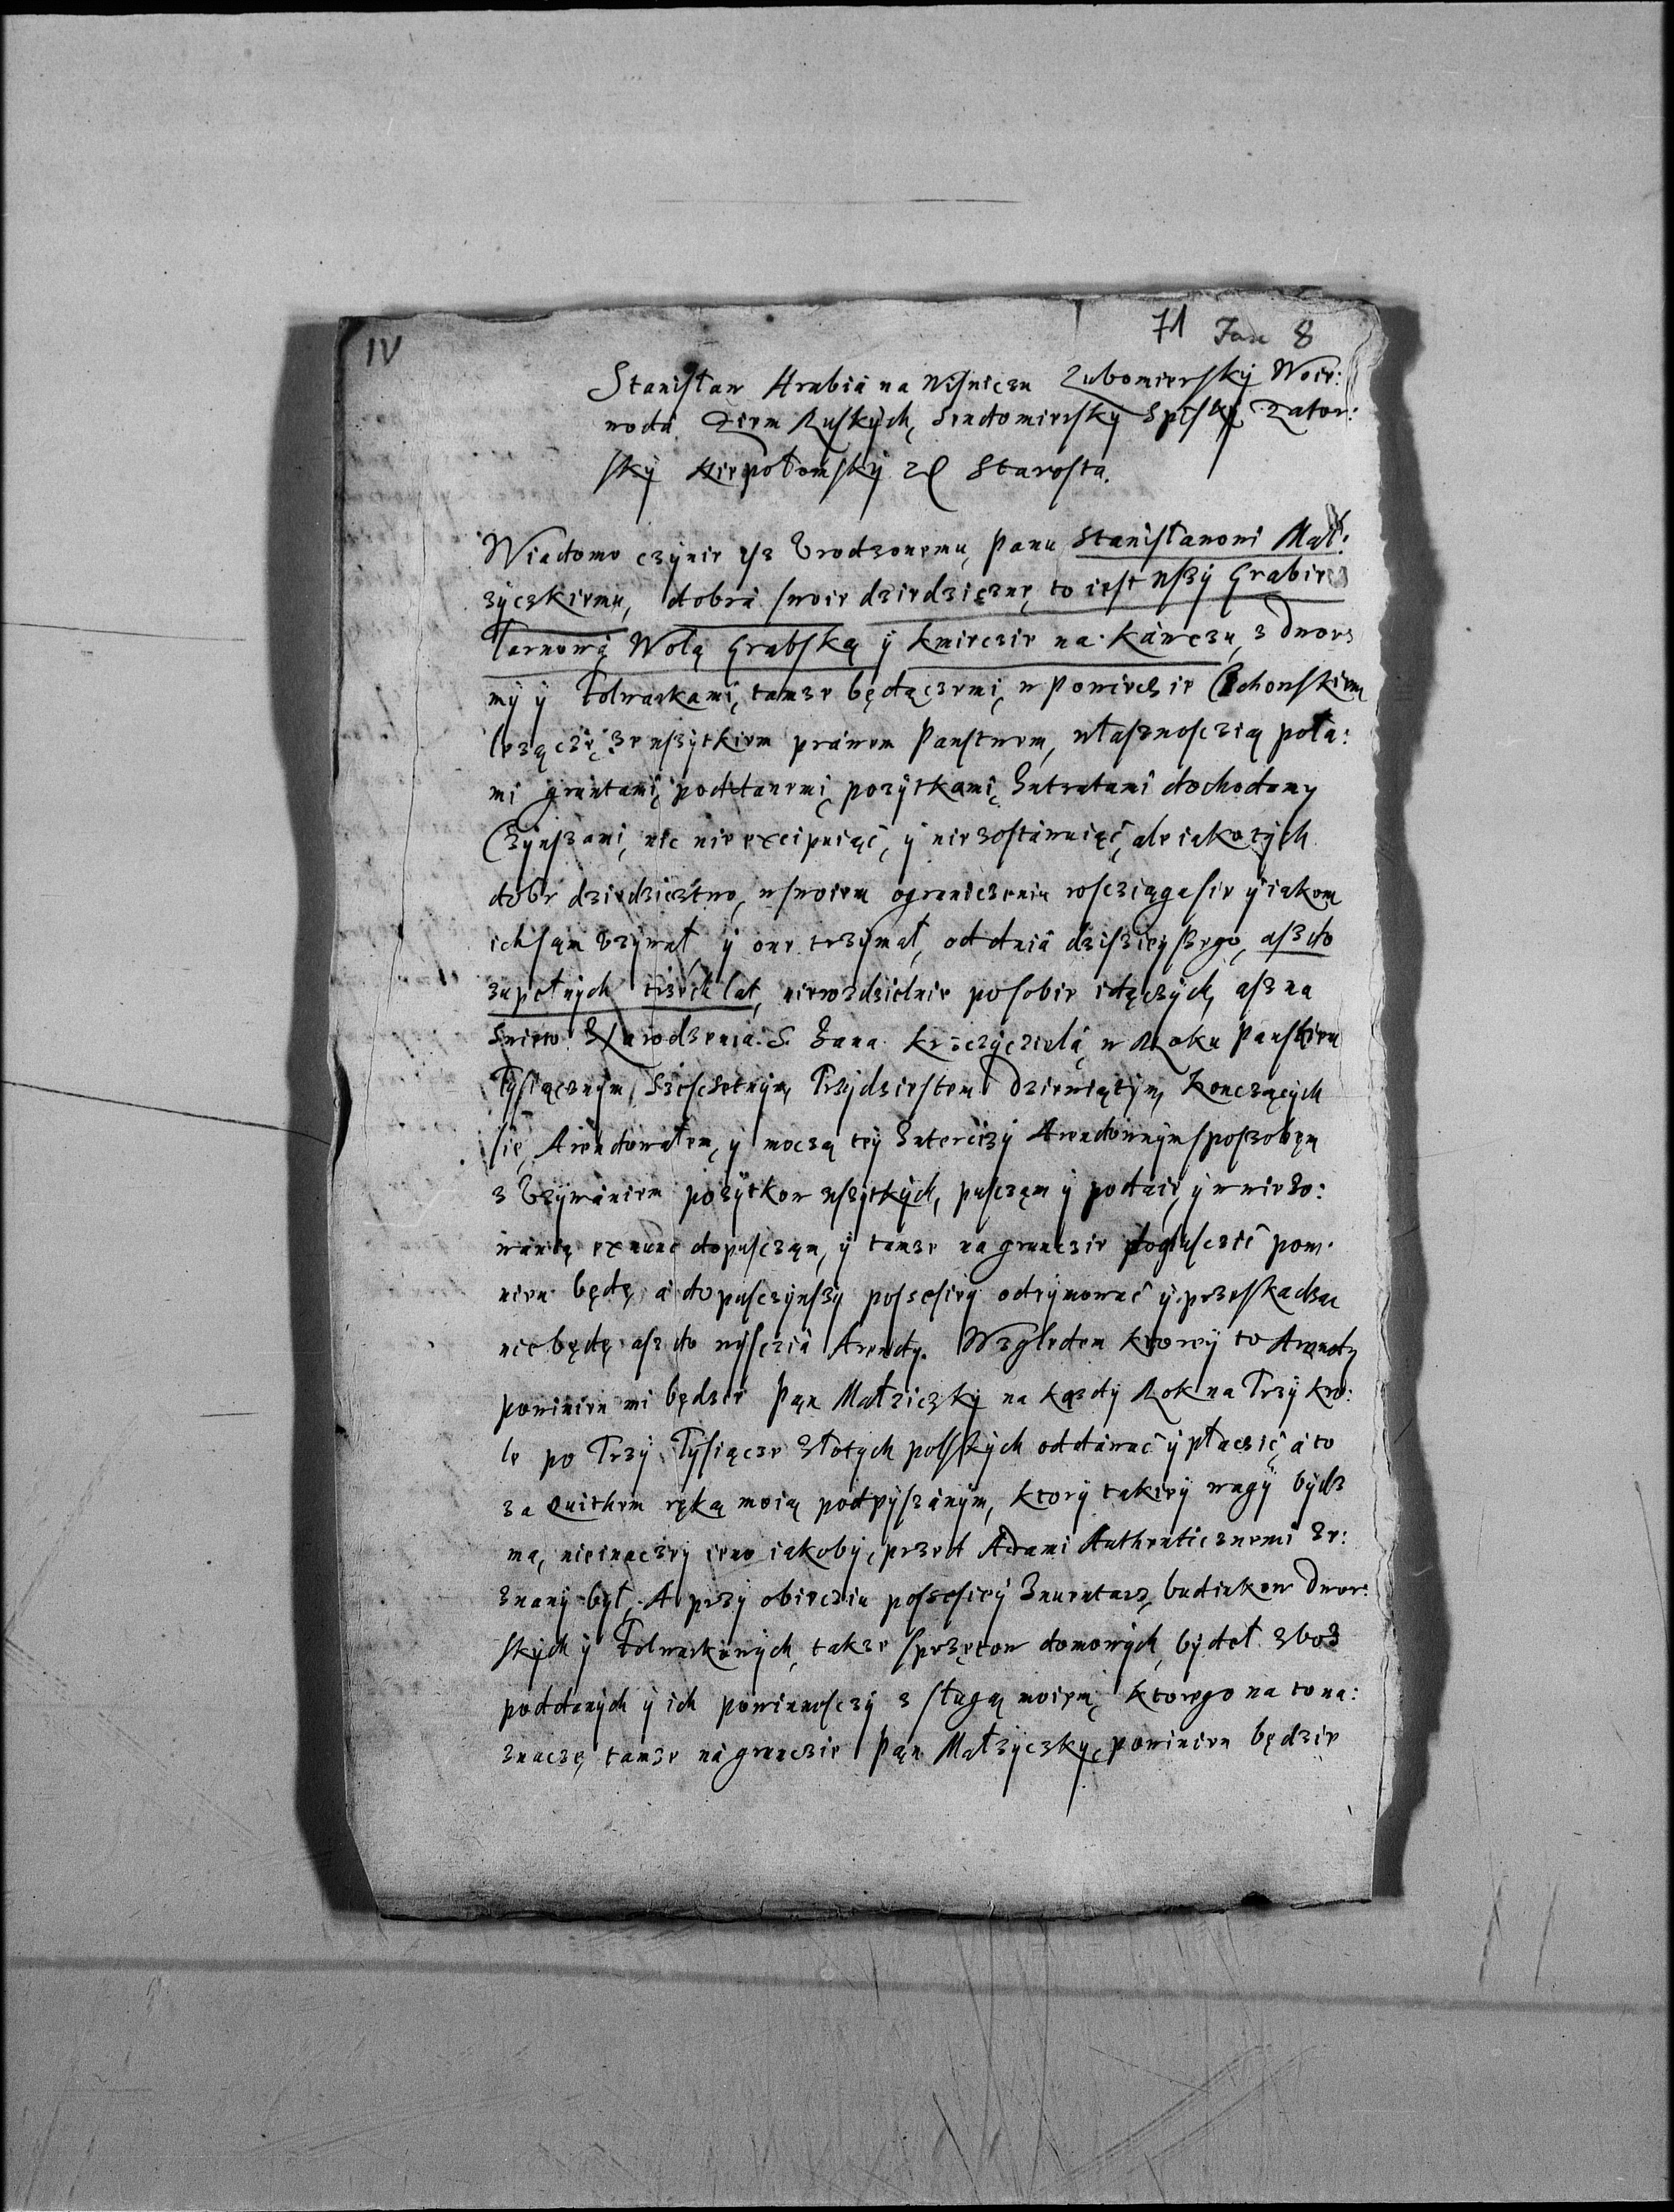 IV
71 Jan 8
Stanisław Hrabia na Wisniczu Lubomierskÿ Woie:
woda Ziem Ruskÿch, Sendomierskÿ Spiskÿ Zator:
skÿ Niepołomskÿ Starosta.
Wiadomo czÿnie isz Vrodzonemu Panu Stanisławoni Mał:
zÿczkiemu, dobra swoie dziedziczne, to iest wszÿ Grabie
Tarnową Wolą Grabską ÿ kmieczie na Kawczu, z dwora
mÿ ÿ Folwarkami, tamze będączemi, w Powieczie Czchowskiem
lezącze, ze wszÿtkiem prawem Panstwem, własznosczią pola:
mi gruntami, poddanemi, pozÿtkami, Intratami dochodamy
Czÿnszami, nic nie excipuiąć, ÿ nie zostawuiąć, ale iako tÿch
dobr dziedzicztwo, w swoiem ograniczeniu rosciągasie ÿ iakom
ich sam Vzÿwał, ÿ one trzÿmał, od dnia dzisieÿszego, asz do
zupełnÿch trzech lat, nierozdzielnie posobie idączÿch, asz na
Swieto Narodzenia S. Jana Krzcziczielą w Roku Panskiem
Tÿsiącznÿm Szescsetnÿm Trzÿdziestem Dziewiątÿm, Konczącÿch
się, Arendowałem, ÿ moczą teÿ Intercizÿ Arendownÿm sposzobem
z Vzÿwaniem pozÿtkow wszÿtkÿch, pusczam ÿ podaię, ÿ w wiezo:
wanią exnunc dopusczam, ÿ tamze na grunczie dopusczić pow:
nien będę, a dopusczÿwszÿ possesieÿ odeÿmować ÿ przeskadzac
nie będę asz do wÿsczia Arendy. Wzgledem ktoreÿ to Arendy
powinien mi będzie Pan Małziczkÿ na kazdÿ Rok na Trzÿ kro:
le po Trzÿ Tÿsiącze Złotych polskÿch oddawać ÿ płaczić, a to
za Quithem ręką moią podpÿszanÿm, ktorÿ takieÿ wagÿ bÿdz
ma, nieinaczeÿ ieno iakobÿ, przed Actami Authenticznemi ze:
znanÿ bÿł. A przÿ obieczju possesieÿ Inwentarz, budinkow Dwor:
skÿch ÿ Folwarkowÿch, takze sprzętow domowÿch, bÿdeł zboz
poddanÿch ÿ ich powinnosczÿ z sługą moiem, ktorego na to na:
znaczę, tamze na grunczie Pan Małzÿczkÿ, powinien będzie